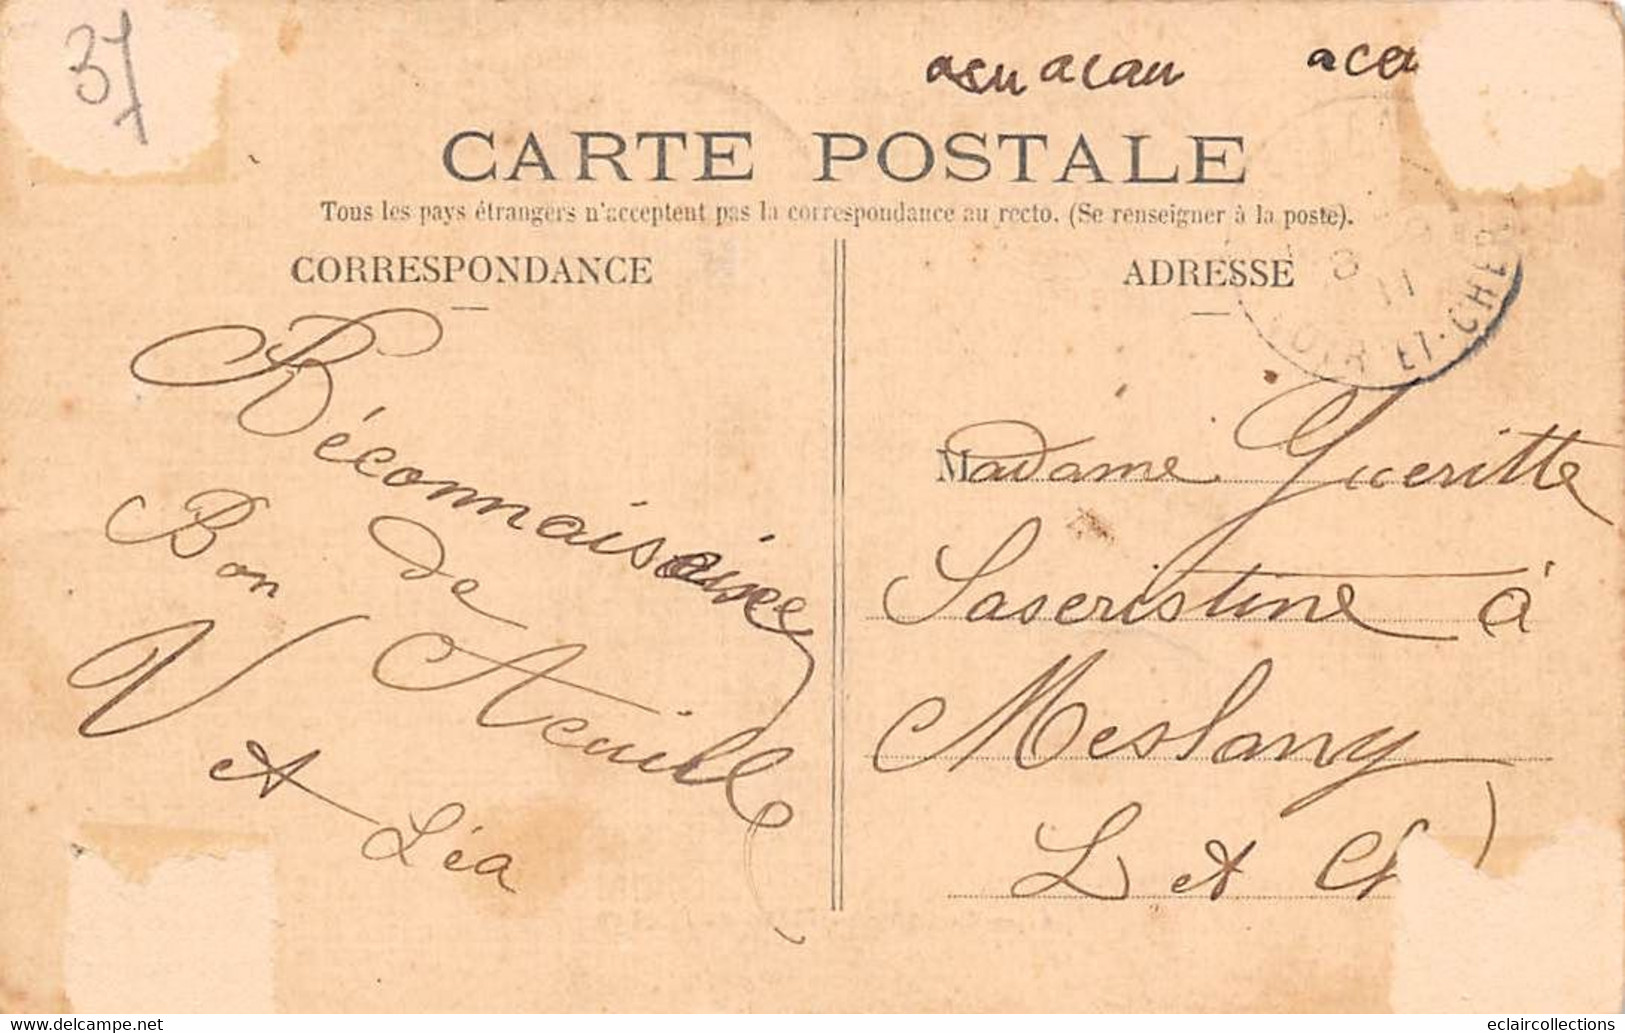 37
asu acau aca
CARTE POSTALE
Tous les pays étrangers n'acceptent pas la correspondance au recto. (Se renseigner à la poste).
CORRESPONDANCE
ADRESSE
11
LOIR-ET-CHER
Réconnaissance
Bon de
V Acaille
et Léa
Madame Gueritte
Saseristine à
Meslany
L et C)
eclaircollections